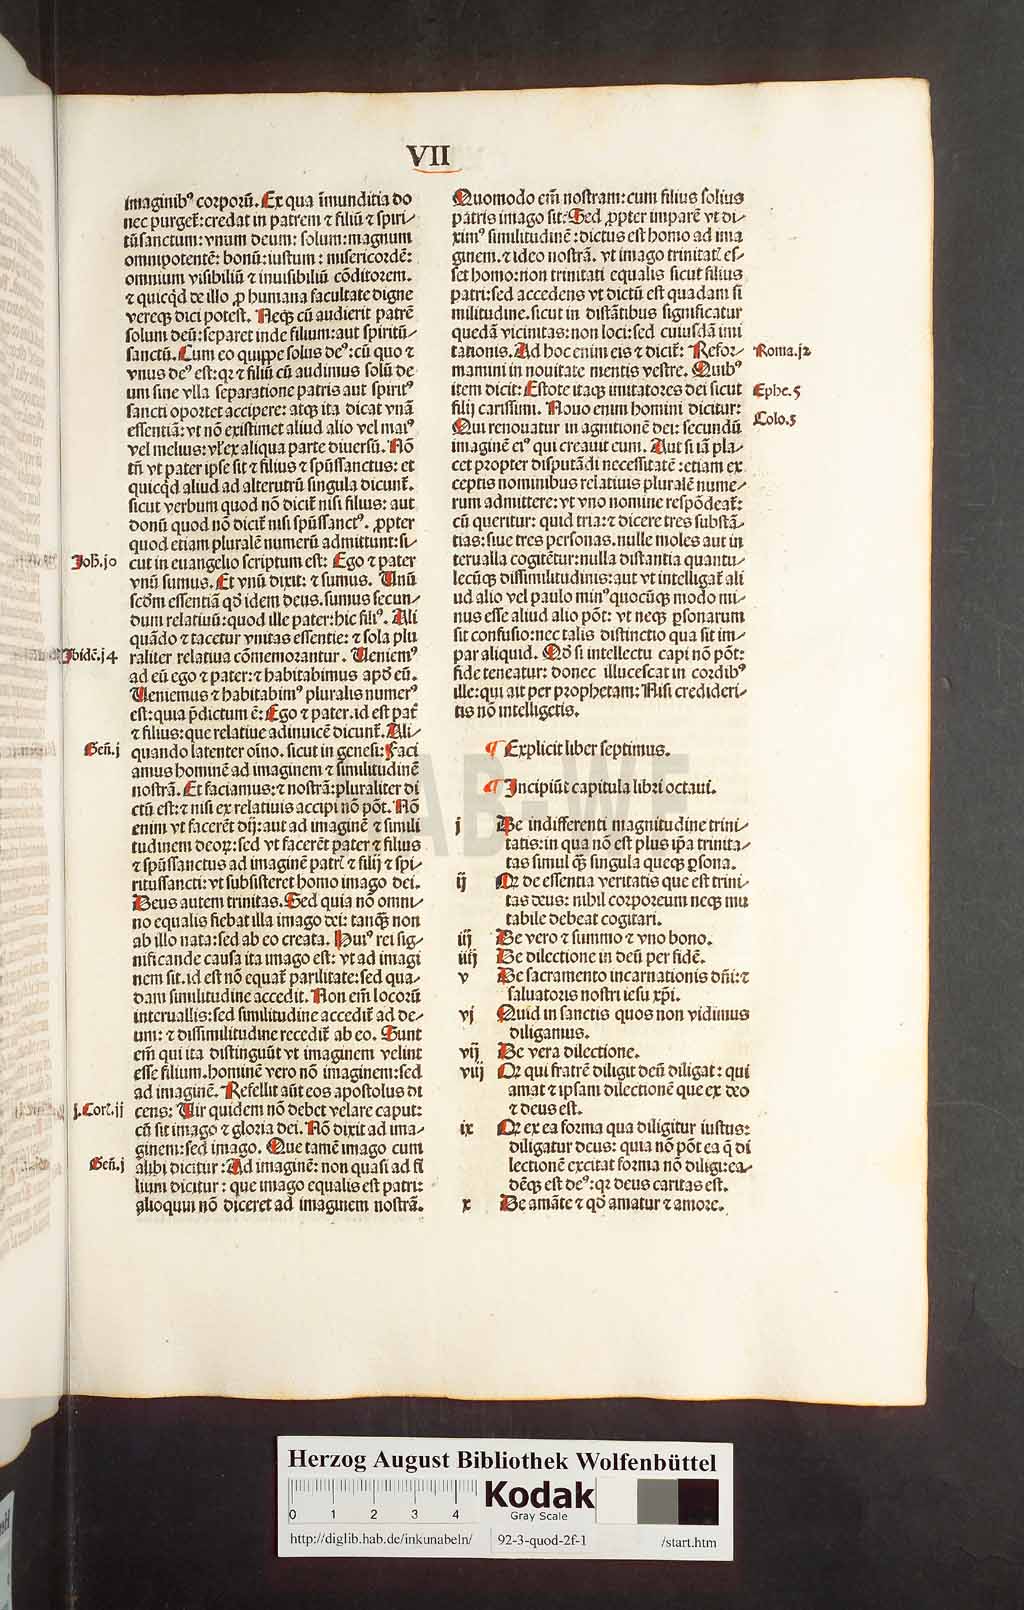 VII
imaginibꝰ corporū. Ex qua īmunditia do
nec purget̄: credat in patrem ⁊ filiū ⁊ spiri⸗
tū sanctum: vnum deum: solum: magnum
omnipotentē: bonū: iustum: misericordē:
omnium visibiliū ⁊ inuisibiliū cōditorem.
⁊ quicq̇d de illo ꝓ humana facultate digne
vereqꝫ dici potest. Neqꝫ cū audierit patrē
solum deū: separet inde filium: aut spiritū⸗
sanctū. Cum eo quippe solus deꝰ: cū quo ⁊
vnus deꝰ est: qꝛ ⁊ filiū cū audimus solū de
um sine vlla separatione patris aut spiritꝰ
sancti oportet accipere: atqꝫ ita dicat vnā
essentiā: vt nō existimet aliud alio vel maiꝰ
vel melius: vl̓ ex aliqua parte diuersū. Nō
tn̄ vt pater ipse sit ⁊ filius ⁊ spūssanctus: et
quicq̇d aliud ad alterutrū singula dicunt̄.
sicut verbum quod nō dicit̄ nisi filius: aut
donū quod nō dicit̄ nisi spūssanctꝰ. ꝓpter
quod etiam pluralē numerū admittunt: si⸗
Joh̄. j0
cut in euangelio scriptum est: Ego ⁊ pater
vnū sumus. Et vnū dixit: ⁊ sumus. Unū
scd̄m essentiā qd̓ idem deus. sumus secun⸗
dum relatiuū: quod ille pater: hic filiꝰ. Ali
quādo ⁊ tacetur vnitas essentie: ⁊ sola plu
Ibidē. j4
raliter relatiua cōmemorantur. Ueniemꝰ
ad eū ego ⁊ pater: ⁊ habitabimus apd̓ eū.
Ueniemus ⁊ habitabimꝰ pluralis numerꝰ
est: quia p̄dictum ē: Ego ⁊ pater. id est pat̄
⁊ filius: que relatiue adinuicē dicunt̄. Ali⸗
Geñ. j
quando latenter oīno. sicut in genesi: Faci
amus hominē ad imaginem ⁊ similitudinē
nostrā. Et faciamus: ⁊ nostrā: pluraliter di
ctū est: ⁊ nisi ex relatiuis accipi nō pōt. Nō
enim vt facerēt dij: aut ad imaginē ⁊ simili
tudinem deoꝝ: sed vt facerēt pater ⁊ filius
⁊ spūssanctus ad imaginē patrꝭ ⁊ filij ⁊ spi⸗
ritussancti: vt subsisteret homo imago dei.
Deus autem trinitas. Sed quia nō omni⸗
no equalis fiebat illa imago dei: tanqꝫ̄ non
ab illo nata: sed ab eo creata. Huiꝰ rei sig⸗
nificande causa ita imago est: vt ad imagi
nem sit. id est nō equat̄ parilitate: sed qua⸗
dam similitudine accedit. Non em̄ locorū
interuallis: sed similitudine accedit̄ ad de⸗
um: ⁊ dissimilitudine recedit̄ ab eo. Sunt
em̄ qui ita distinguūt vt imaginem velint
esse filium. hominē vero nō imaginem: sed
ad imaginē. Refellit aūt eos apostolus di
j. Corī. ij
cens: Uir quidem nō debet velare caput:
cū sit imago ⁊ gloria dei. Nō dixit ad ima⸗
ginem: sed imago. Que tamē imago cum
Geñ. j
alibi dicitur: Ad imaginē: non quasi ad fi
lium dicitur: que imago equalis est patri:
alioquin nō diceret ad imaginem nostrā.
Quomodo em̄ nostram: cum filius solius
patris imago sit: Sed ꝓpter imparē vt di⸗
ximꝰ similitudinē: dictus est homo ad ima
ginem. ⁊ ideo nostrā. vt imago trinitatꝭ es⸗
set homo: non trinitati equalis sicut filius
patri: sed accedens vt dictū est quadam si
militudine. sicut in distātibus significatur
quedā vicinitas: non loci: sed cuiusdā imi
tationis. Ad hoc enim eis ⁊ dicit̄: Refor⸗
Roma. j2
mamini in nouitate mentis vestre. Quibꝰ
item dicit: Estote itaqꝫ imitatores dei sicut
Ephe. 5
filij carissimi. Nouo enim homini dicitur:
Colo. 3
Qui renouatur in agnitionē dei: secundū
imaginē eiꝰ qui creauit eum. Aut si iā pla⸗
cet propter disputādi necessitatē: etiam ex
ceptis nominibus relatiuis pluralē nume⸗
rum admittere: vt vno nomine respōdeat̄:
cū queritur: quid tria: ⁊ dicere tres substā⸗
tias: siue tres personas. nulle moles aut in
terualla cogitētur: nulla distantia quantu⸗
lecūqꝫ dissimilitudinis: aut vt intelligat̄ ali
ud alio vel paulo minꝰ quocūqꝫ modo mi⸗
nus esse aliud alio pōt: vt neqꝫ ꝑsonarum
sit confusio: nec talis distinctio qua sit im⸗
par aliquid. Qd̓ si intellectu capi nō pōt:
fide teneatur: donec illucescat in cordibꝰ
ille: qui ait per prophetam: Nisi credideri⸗
tis nō intelligetis.
¶ Explicit liber septimus.
¶ Incipiūt capitula libri octaui.
j De indifferenti magnitudine trini⸗
tatis: in qua nō est plus ip̄a trinita⸗
tas simul qꝫ̄ singula queqꝫ ꝑsona.
ij Qꝛ de essentia veritatis que est trini⸗
tas deus: nihil corporeum neqꝫ mu
tabile debeat cogitari.
iij De vero ⁊ summo ⁊ vno bono.
iiij De dilectione in deū per fidē.
v De sacramento incarnationis dn̄i: ⁊
saluatoris nostri iesu xp̄i.
vj Quid in sanctis quos non vidimus
diligamus.
vij De vera dilectione.
viij Qꝛ qui fratrē diligit deū diligat: qui
amat ⁊ ipsam dilectionē que ex deo
⁊ deus est.
ix Qꝛ ex ea forma qua diligitur iustus:
diligatur deus: quia nō pōt ea q̄ di
lectionē excitat forma nō diligi: ea⸗
dēqꝫ est deꝰ: qꝛ deus caritas est.
x De amāte ⁊ qd̓ amatur ⁊ amore.
HAB-WF
Herzog August Bibliothek Wolfenbüttel
0 1 2 3 4
Kodak
Gray Scale
http://diglib.hab.de/inkunabeln/ 92-3-quod-2f-1 /start.htm